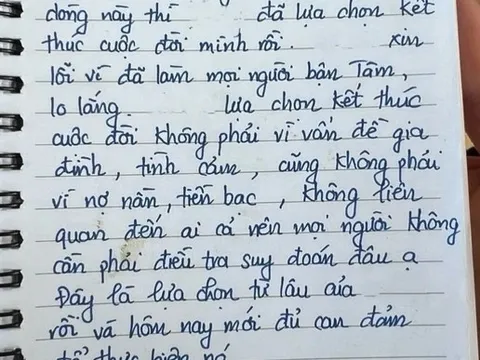 dòng này thì đã lựa chọn kết
thúc cuộc đời mình rồi. xin
lỗi vì đã làm mọi người bận Tâm,
lo lắng. lựa chọn kết thúc
cuộc đời không phải vì vấn đề gia
đình, tình cảm, cũng không phải
vì nợ nần, tiền bạc, không liên
quan đến ai cả nên mọi người không
cần phải điều tra suy đoán đâu ạ
Đây là lựa chọn từ lâu của
rồi và hôm nay mới đủ can đảm
để thực hiện nó